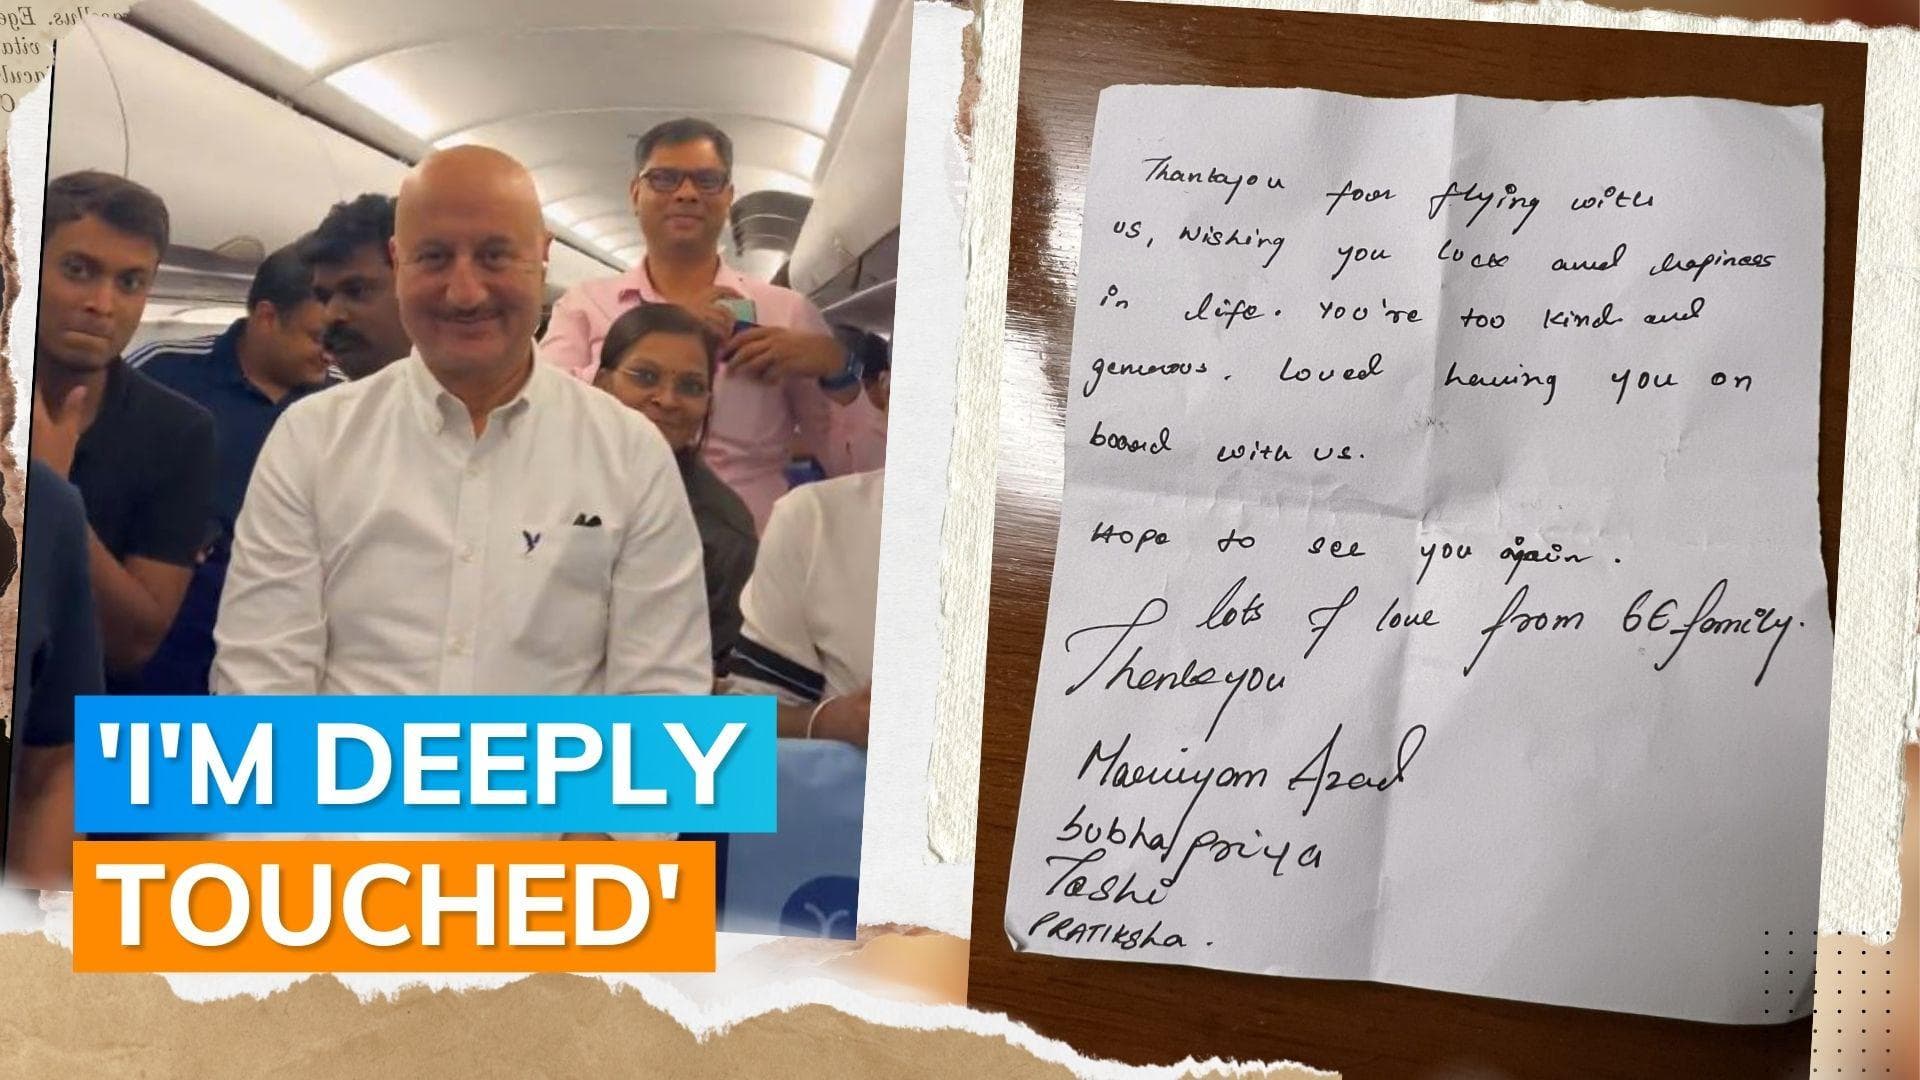 'I'M DEEPLY
TOUCHED'
Thankyou for flying with
us, Wishing you luck and hapiness
in life. You're too kind and
generous. Loved having you on
board with us.
Hope to see you again.
lots of love from 6E family.
Thankyou
Mariyam Azad
priya
Tashi
PRATIKSha.